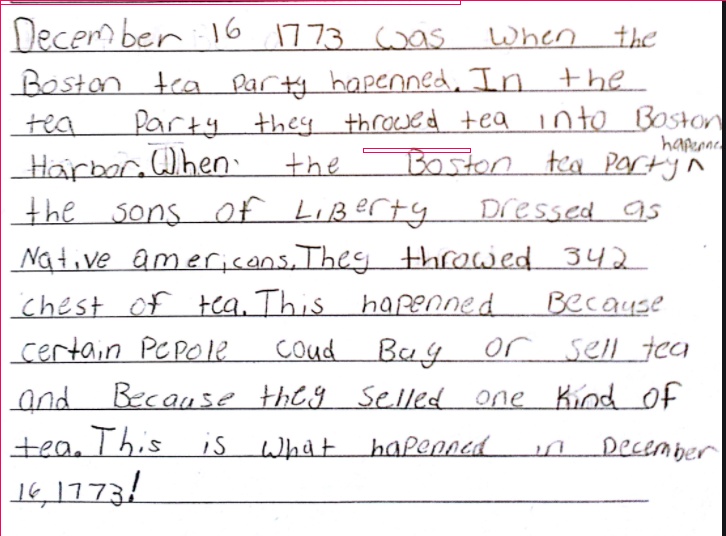 December 16 1773 was when the
Boston tea party hapenned. In the
tea Party they throwed tea into Boston
Harbor. When the Boston tea party ^ hapenned
the sons of LiBerty Dressed as
Native americans. They throwed 342
chest of tea. This hapenned Because
certain Pepole coud Buy or sell tea
and Because they selled one kind of
tea. This is what hapenned in December
16, 1773!